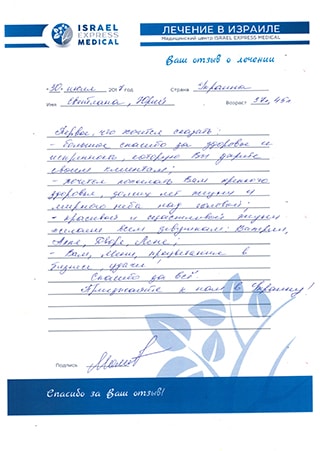 ISRAEL
EXPRESS
MEDICAL
ЛЕЧЕНИЕ В ИЗРАИЛЕ
Медицинский центр ISRAEL EXPRESS MEDICAL
Ваш отзыв о лечении
30 июля 2017 год Страна Украина
Имя Светлана, Юрий Возраст 37г, 45г
Первое, что хочется сказать:
- большое спасибо за здоровье и
искренность, которую Вы дарите
своим клиентам!;
- хочется пожелать Вам крепкого
здоровья, долгих лет жизни и
мирного неба над головой;
- красивой и счастливой жизни
желаем всем девушкам: Валерии,
Анне, Лене;
- Вам, процветания в
бизнесе, удачи!
Спасибо за всё
Приезжайте к нам в Украину!
Подпись
Спасибо за Ваш отзыв!